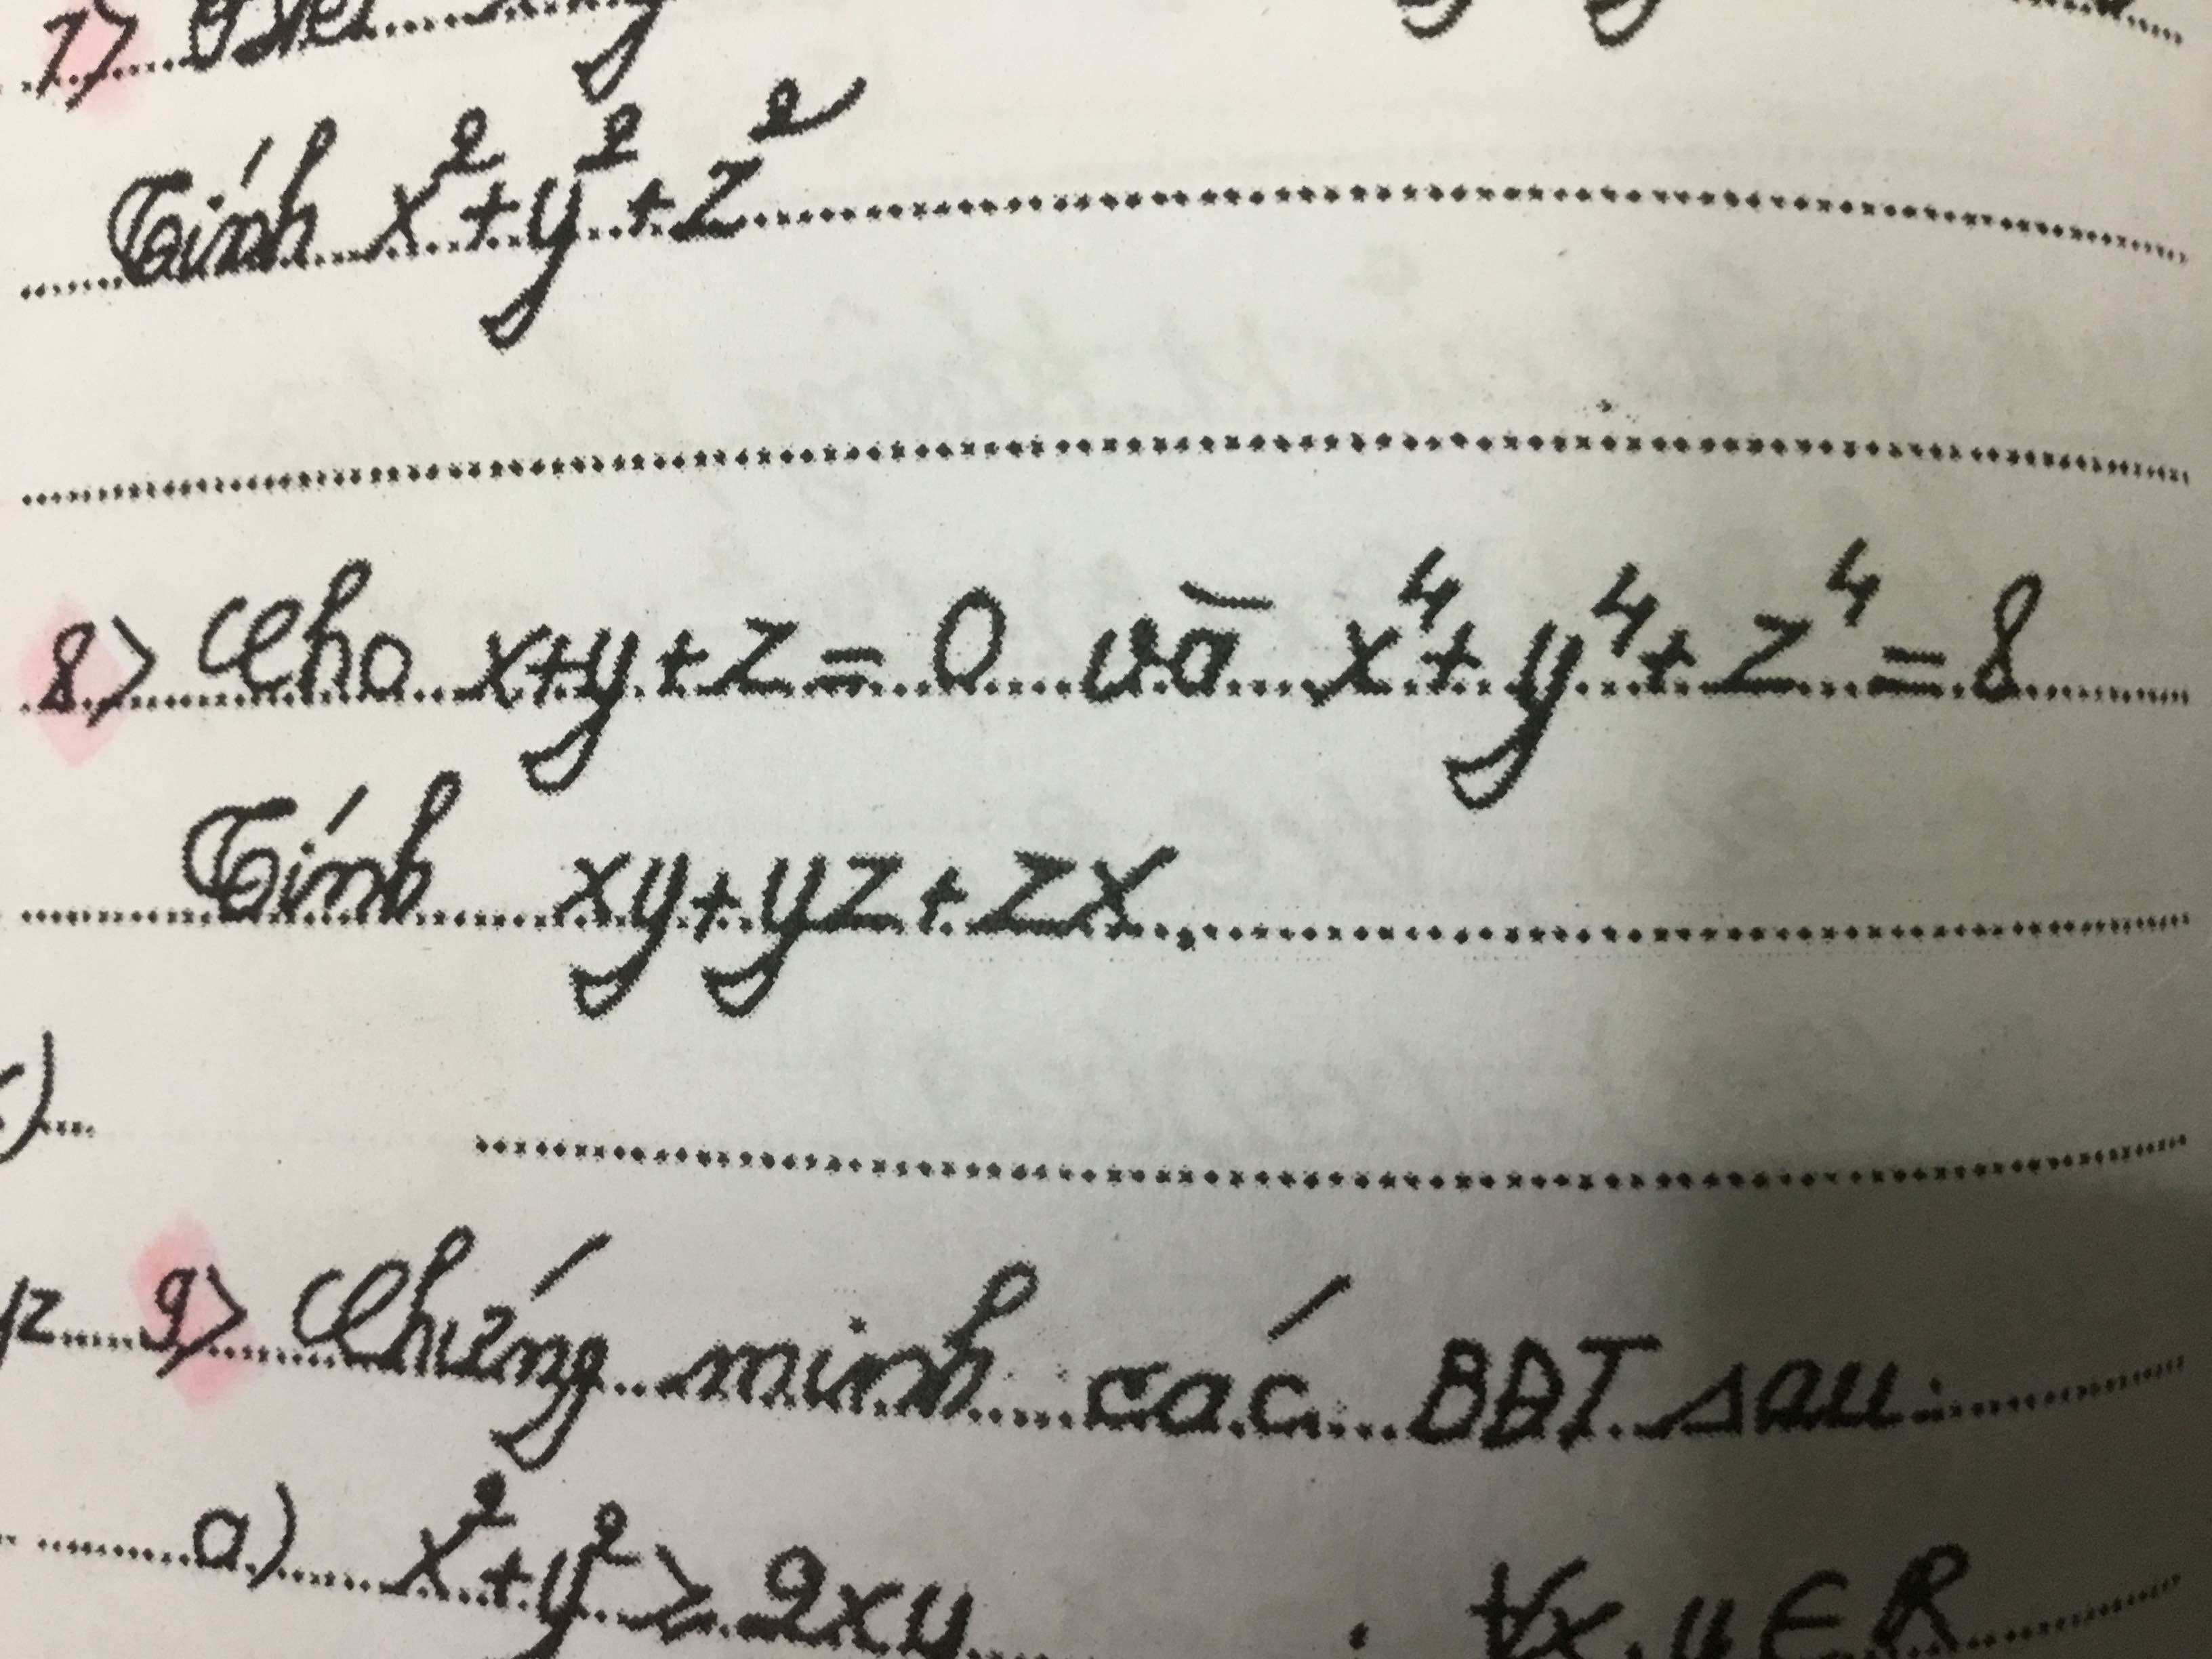 7>
Tính x²+y²+z²
8> Cho x+y+z=0 và x⁴+y⁴+z⁴=8
Tính xy+yz+zx.
)
9> Chứng minh các BĐT sau:
a) x²+y²≥2xy ; ∀x,y∈R